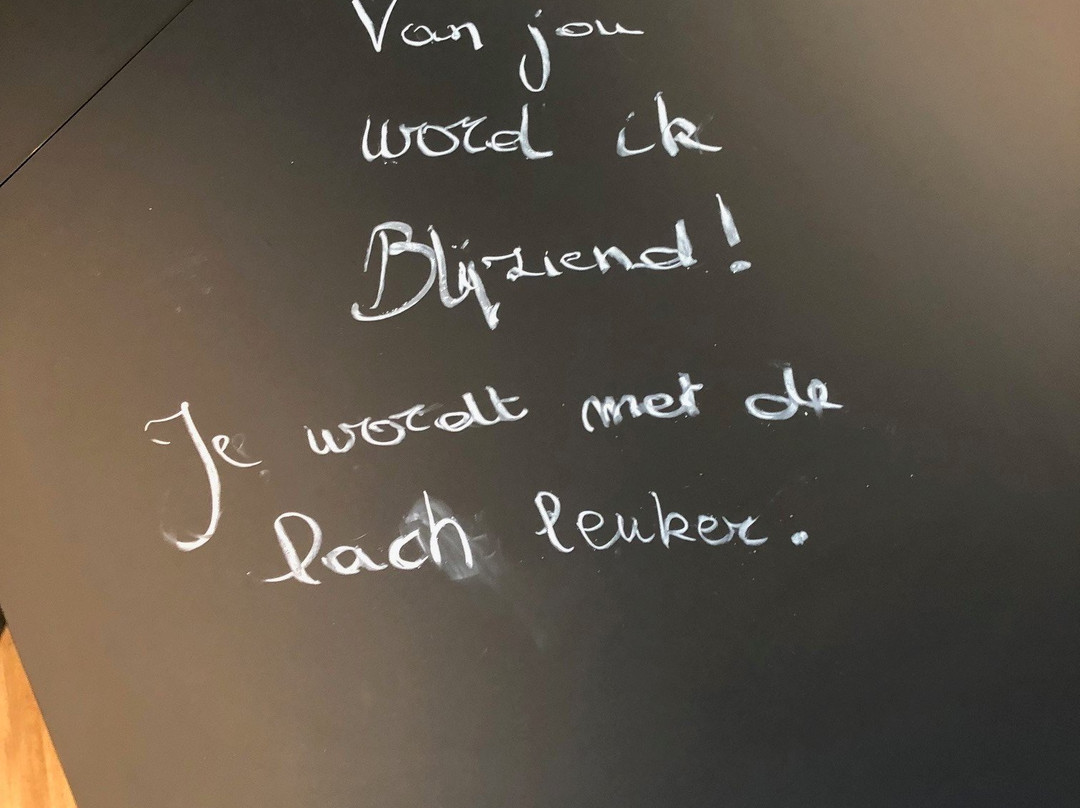 Van jou
word ik
Blijziend!
Je wordt met de
lach leuker.